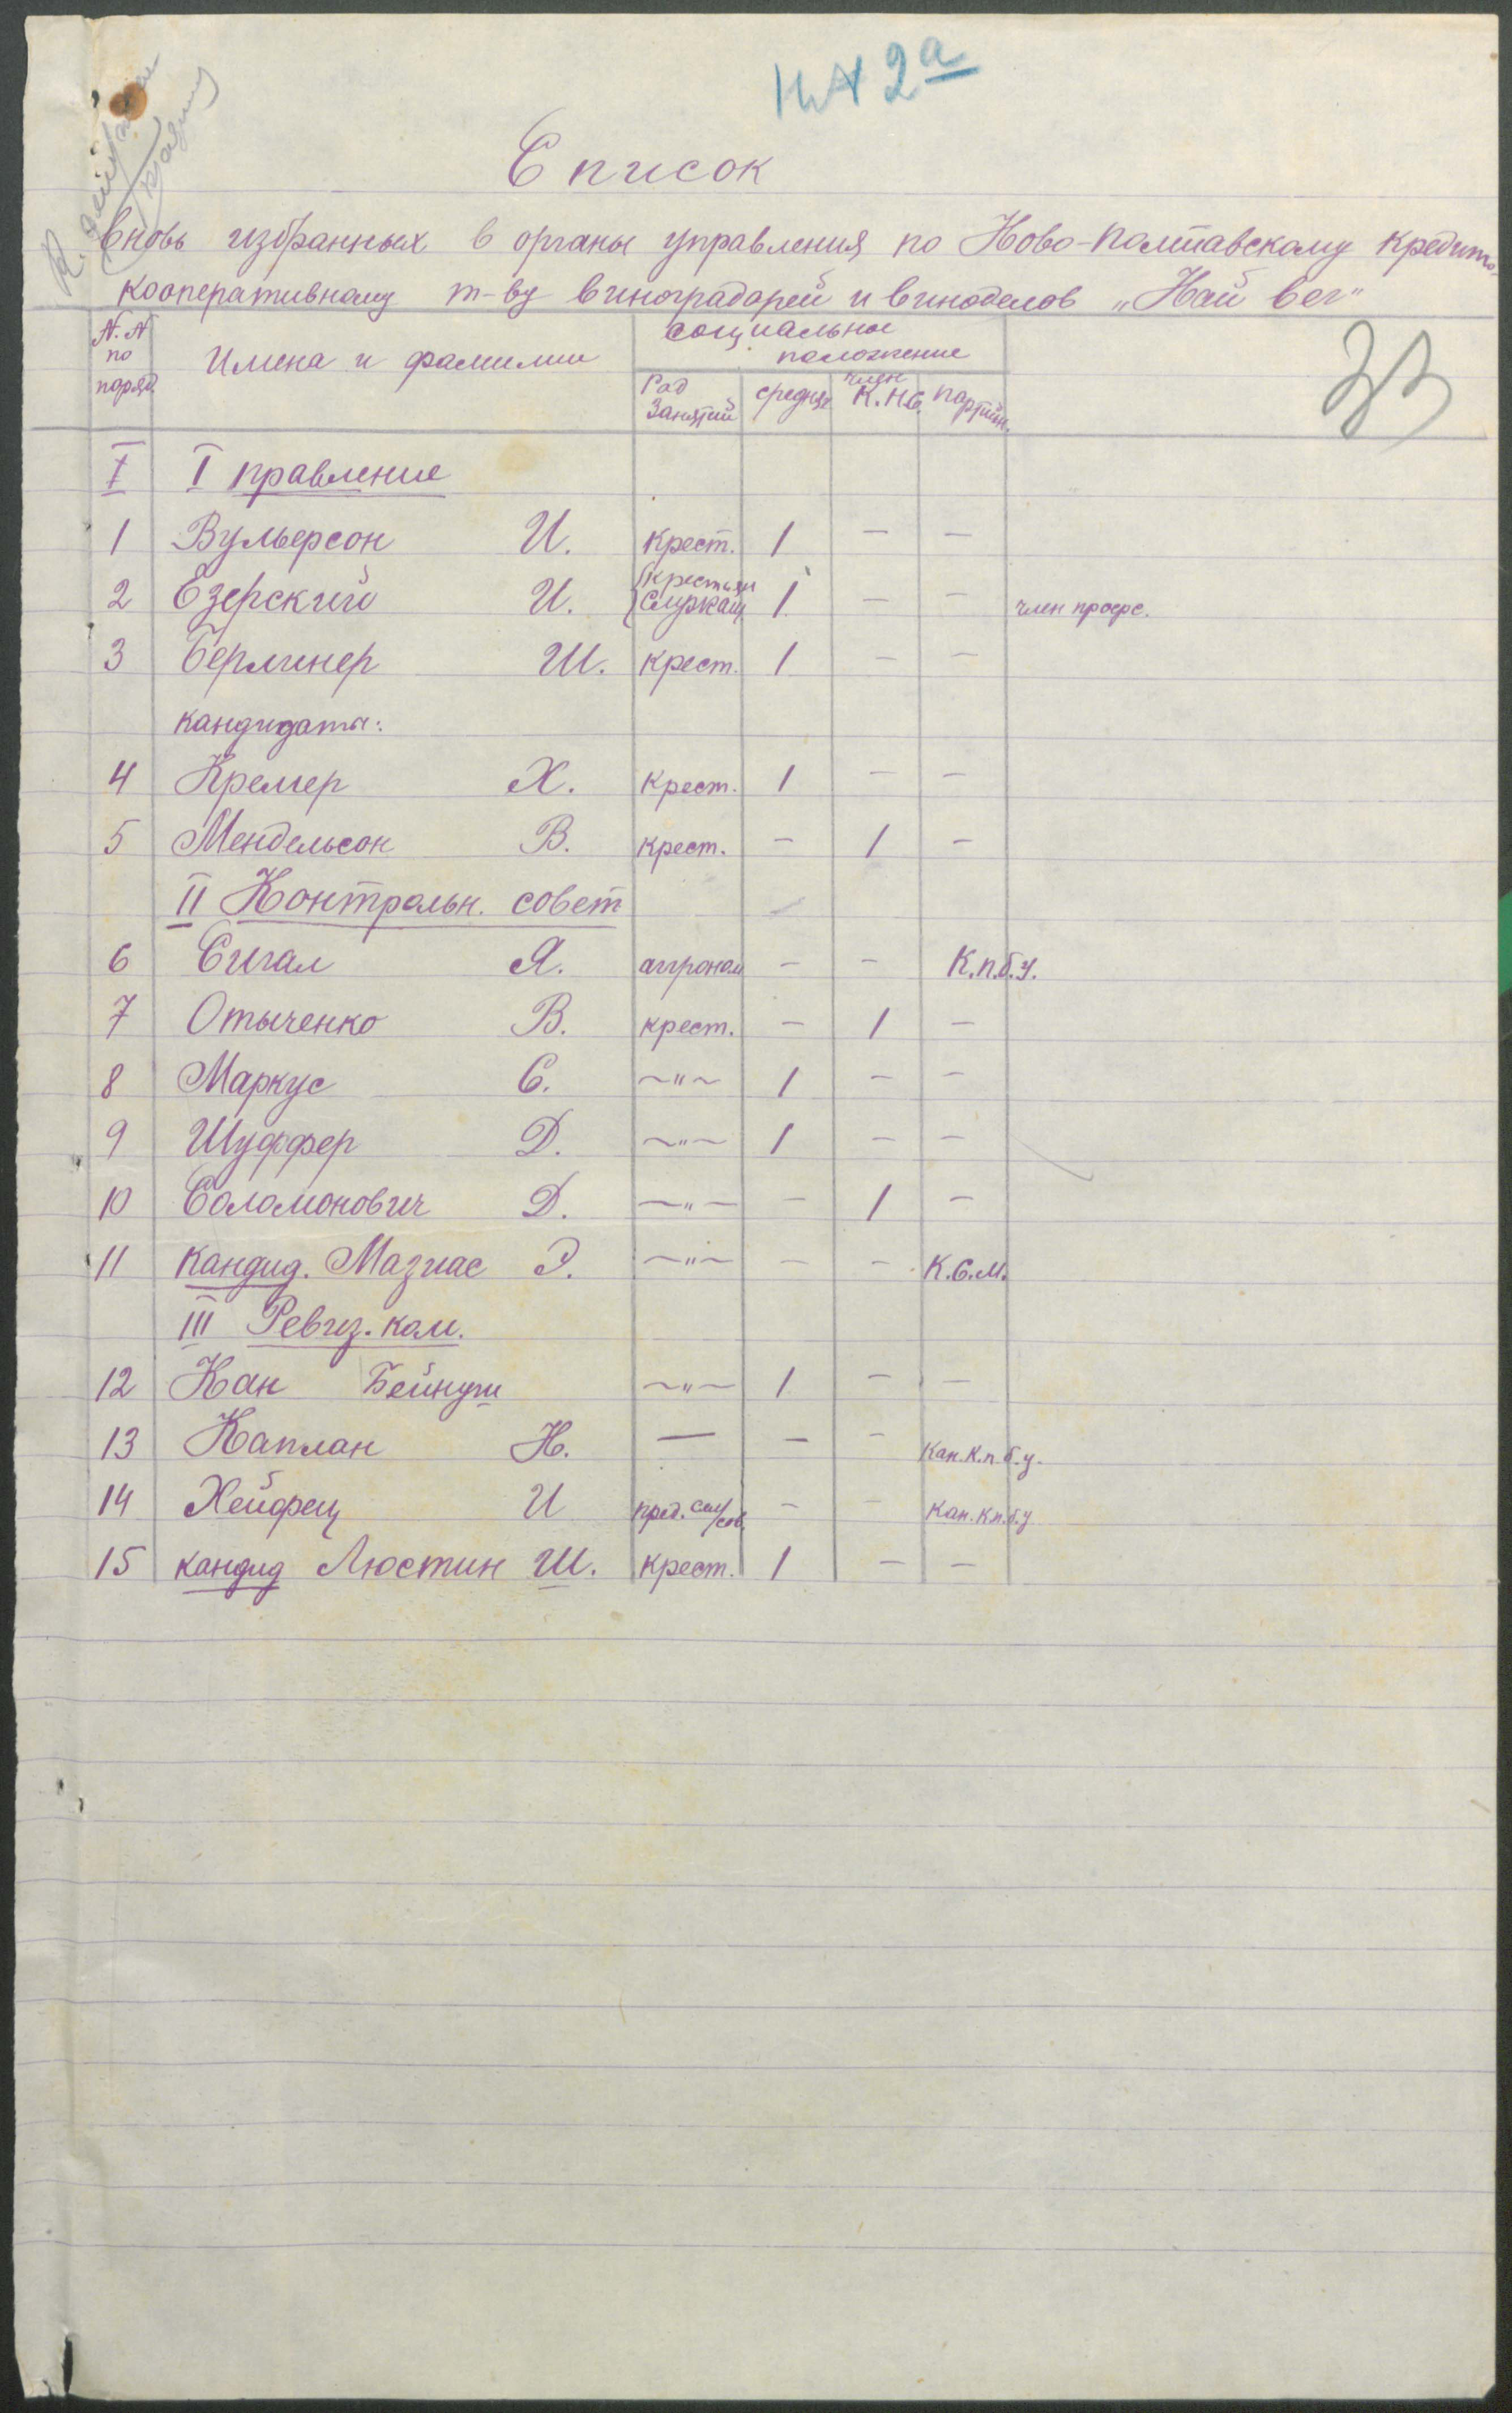 2а
Список
вновь избранных в органы управления по Ново-Полтавскому кредитно-
кооперативному т-ву виноградарей и виноделов „Най вег"
N.N по поряд. Имена и фамилии социальное положение
Род занятий средняк член К.Н.С. партийн.
33
I I правление
1 Вульерсон И. крест. 1 — —
2 Езерский И. крестьян служащ 1 — — член профс.
3 Берлинер Ш. крест. 1 — —
кандидаты:
4 Кремер Х. крест. 1 — —
5 Мендельсон В. крест. — 1 —
II Контрольн. совет
6 Сигал Я. агроном — — К.п.б.у.
7 Отыченко В. крест. — 1 —
8 Маркус С. ~"~ 1 — —
9 Шуффер Д. ~"~ 1 — —
10 Соломонович Д. —"— — 1 —
11 кандид. Мазиас Э. ~"~ — — К.С.М.
III Ревиз. ком.
12 Кан Бейнуш ~"~ 1 — —
13 Каплан Н. — — — Кан. К.п.б.у.
14 Хейфец И пред. сел/сов. — — Кан. К.п.б.у
15 кандид Люстин Ш. крест. 1 — —